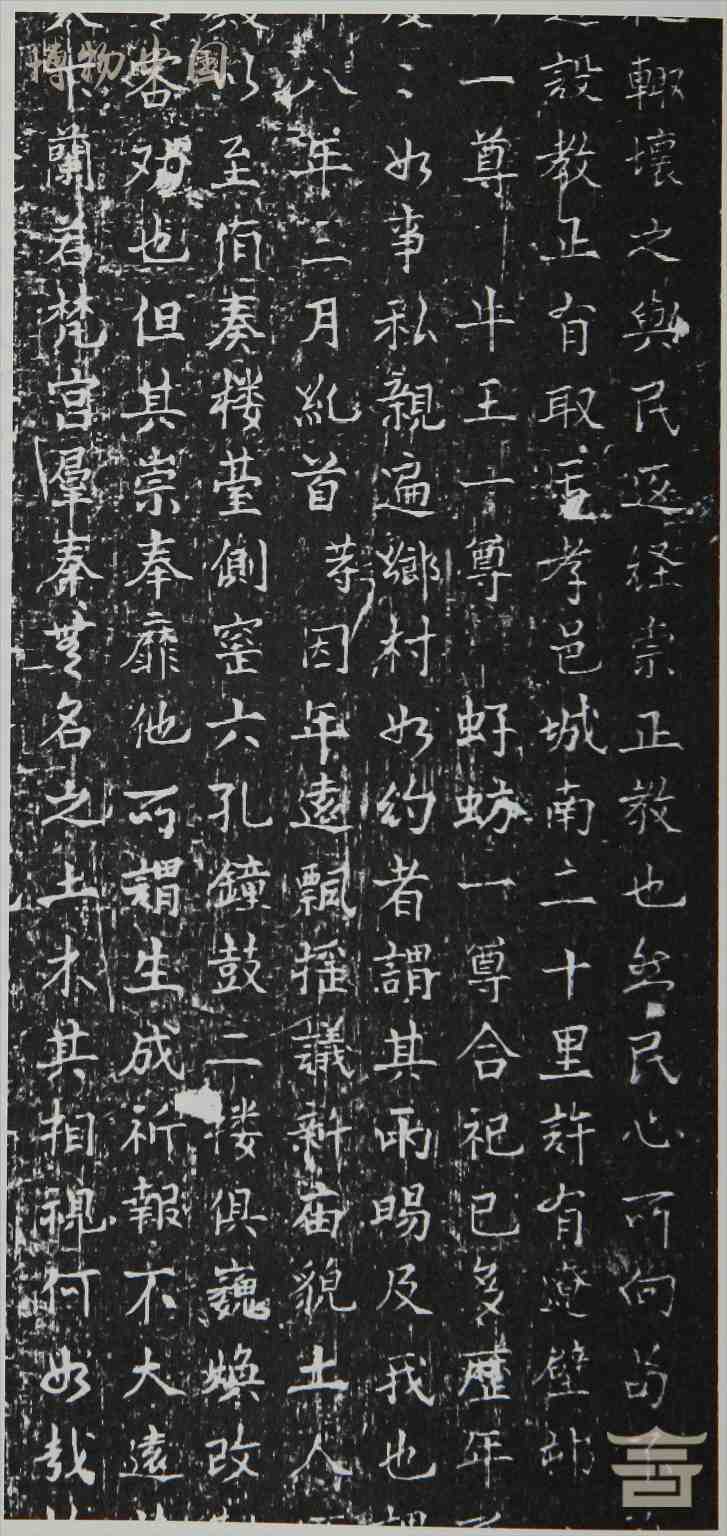 輙壞之與民返経崇正教也然民心所向苟不
設教正有取焉孝邑城南二十里許有遼壁邨
一尊 牛王一尊 虸蚄一尊合祀已多歷年
〻如事私親遍鄉村如約者謂其雨暘及我也
八年三月糺首等因年遠飄摇議新庙貌土人
以至偹奏楼䑓側窑六孔鐘鼓二楼俱巍煥改
畨劝也但其崇奉靡他所謂生成祈報不大遠
蘭若梵宫羣奏無名之土木其相視何如哉
博物中国